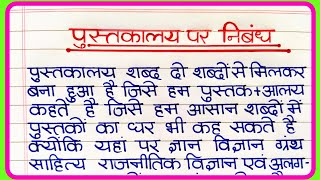 पुस्तकालय पर निबंध
पुस्तकालय शब्द दो शब्दों से मिलकर
बना हुआ है जिसे हम पुस्तक+आलय
कहते हैं जिसे हम आसान शब्दों में
पुस्तकों का घर भी कह सकते हैं
क्योंकि यहां पर ज्ञान विज्ञान ग्रंथ
साहित्य राजनीतिक विज्ञान एवं अलग-